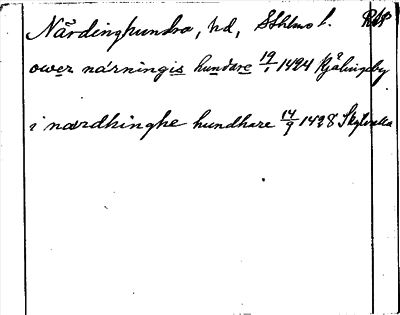 Närdinghundra, hd, Sthlms l. RAP
ower närningis hundare 19/1 1494 Kjälingeby
i nærdhinghe hundhare 14/9 1428 Skylvalla